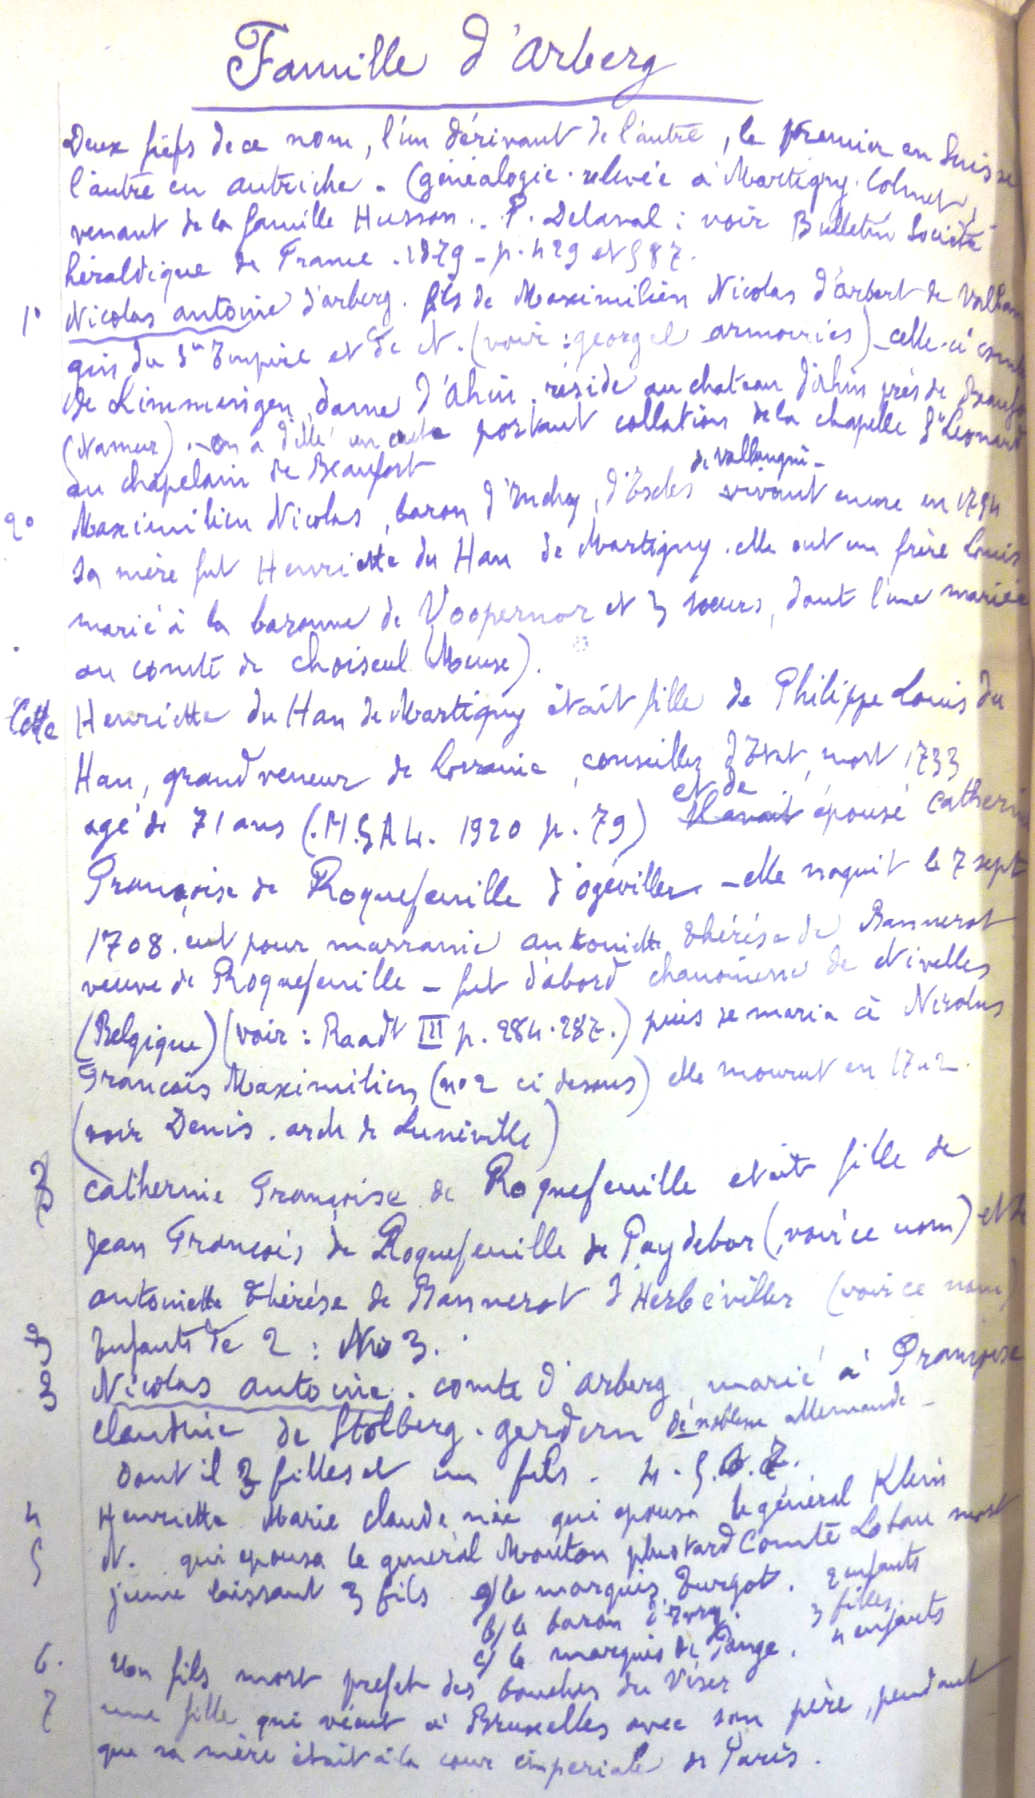 Famille d'Arberg
Deux fiefs de ce nom, l'un dérivant de l'autre, le premier en Suisse
l'autre en autriche. (généalogie relevée à Martigny. Colnet,
venant de la famille Husson. P. Delaval : voir Bulletin Société
héraldique de France. 1879 - p. 429 et 587.
1° Nicolas antoine d'arberg. fils de Maximilien Nicolas d'arbert de Vallan
gin du St Empire et de N. (voir : georgel armoiries) - celle-ci comtesse
de Limmerigen, dame d'Ahin, réside au chateau d'Ahin près de Beaufo
(Namur). on a d'elle un acte portant collation de la chapelle St Léonard
au chapelain de Beaufort
de vallangin -
2° Maximilien Nicolas, baron d', d'Escles vivant encore en 1794
sa mère fut Henriette du Han de Martigny. elle eut un frère Louis
marié à la baronne de Voopernor et 3 soeurs, dont l'une mariée
au comte de choiseul (Meuse).
Cette Henriette du Han de Martigny était fille de Philippe Louis du
Han, grand veneur de Lorraine, conseiller d'Etat, mort 1733
et de
agé de 71 ans (.M.S.A.L. 1920 p. 79) Il avait épousé Catherine
Françoise de Roquefeuille d'ogéviller - elle naquit le 7 sept
1708. eut pour marraine antoinette thérèse de Bannerot
veuve de Roquefeuille - fut d'abord chanoinesse de Nivelles
(Belgique) (voir : Raadt III p. 284.287.) puis se maria à Nicolas
François Maximilien (no 2 ci dessus) elle mourut en 17
(voir Denis. arch de Lunéville)
catherine Françoise de Roquefeuille etait fille de
Jean François de Roquefeuille de Puydebar (voir ce nom) et de
antoinette thérèse de Bannerot d'Herbéviller (voir ce nom)
Enfants de 2 : No 3.
3 Nicolas antoine. comte d'arberg, marié à Françoise
claudine de Stolberg. gerdern de noblesse allemande -
dont il 3 filles et un fils. 4. 5. 6. 7.
4 Henriette Marie claudine qui epousa le général Klein
5 N. qui epousa le général Mouton plus tard Comte Lobau mort
jeune laissant 3 fils a/ le marquis Turgot. 2 enfants
b/ le baron d'. 3 filles.
c/ le marquis de Pange. 4 enfants
6. Un fils mort prefet des bouches du Viser
7 une fille qui vécut à Bruxelles avec son père, pendant
que sa mère était à la cour impériale de Paris.